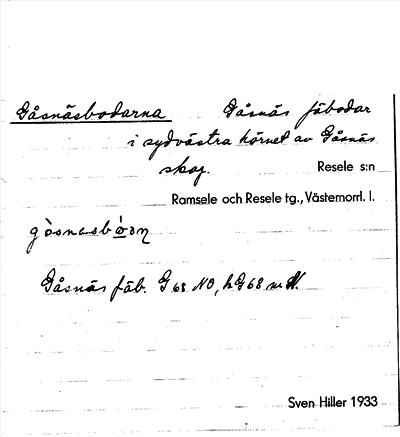 Gåsnäsbodarna Gåsnäs fäbodar
i sydvästra hörnet av Gåsnäs
skog. Resele s:n
Ramsele och Resele tg., Västernorrl. l.
Gåsnäs fäb. G 68 NO, h G 68
Sven Hiller 1933